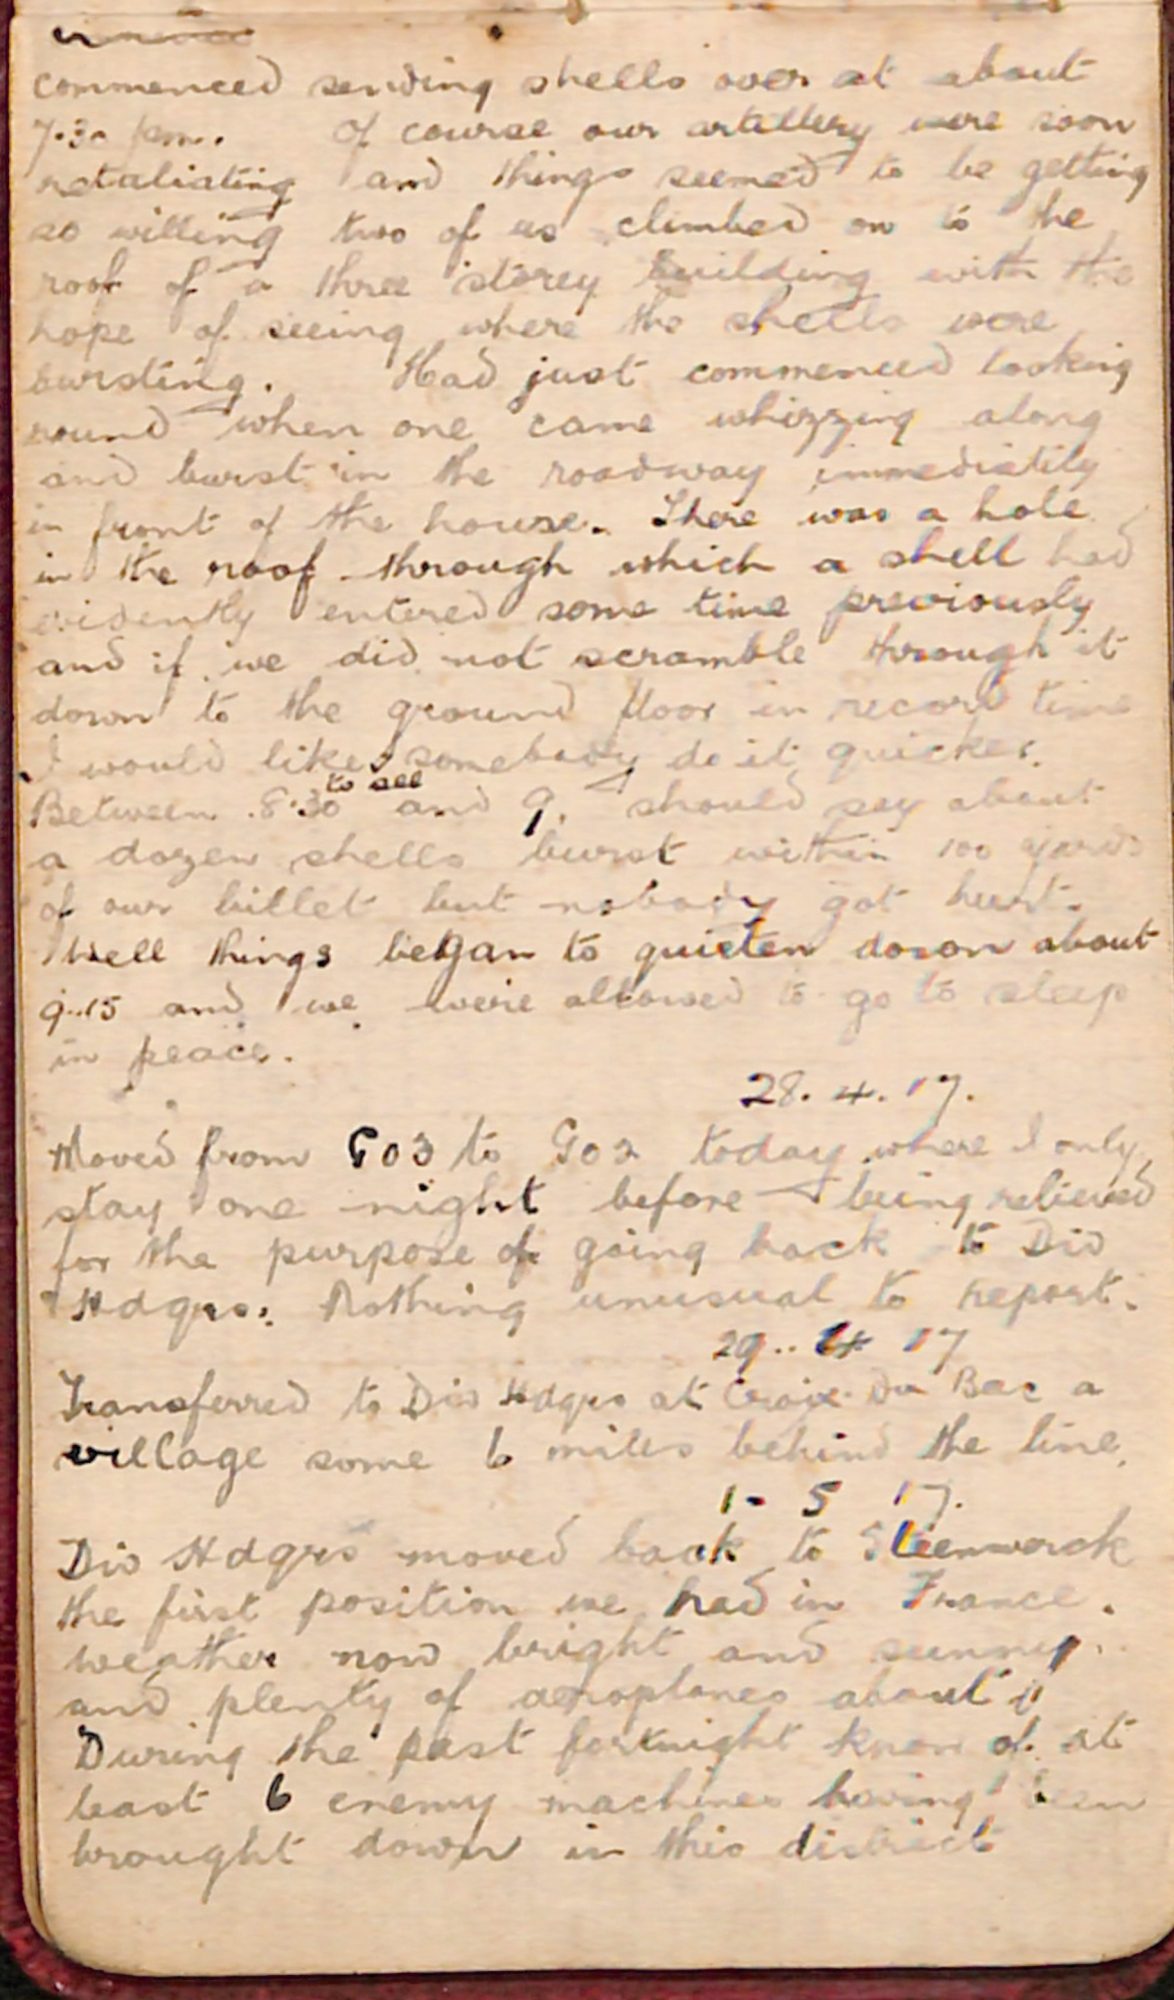 commenced sending shells over at about
7.30 pm. Of course our artillery were soon
retaliating and things seemed to be getting
so willing two of us climbed on to the
roof of a three storey building with the
hope of seeing where the shells were
bursting. Had just commenced looking
round when one came whizzing along
and burst in the roadway immediatily
in front of the house. There was a hole
in the roof through which a shell had
evidently entered some time previously
and if we did not scramble through it
down to the ground floor in record time
I would like to see somebody do it quicker.
Between 8.30 and 9. I should say about
a dozen shells burst within 100 yards
of our billet but nobody got hurt.
Well things began to quieten down about
9.15 and we were allowed to go to sleep
in peace.
28. 4. 17.
Moved from G03 to G02 today where I only
stay one night before being relieved
for the purpose of going back to Div
Hdqrs. Nothing unusual to report.
29.. 4 17
Transferred to Div Hdqrs at Croix Du Bac a
village some 6 miles behind the line.
1- 5 17.
Div Hdqrs moved back to Steenwerck
the first position we had in France.
weather now bright and sunny.
and plenty of aeroplanes about
During the past fortnight know of at
least 6 enemy machines having been
brought down in this district